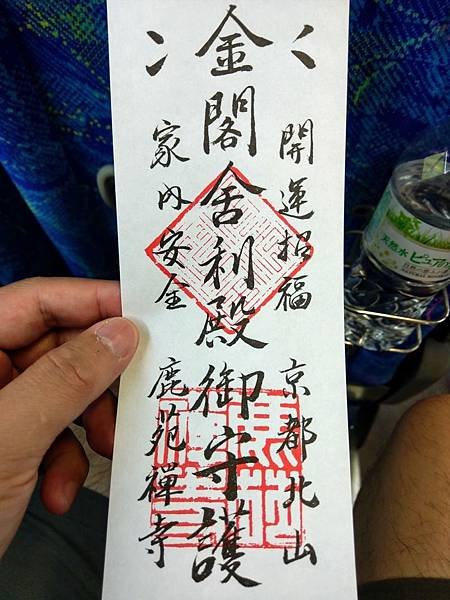 開運招福 京都北山
金閣舎利殿御守護
家内安全 鹿苑禅寺
天然水ピュア